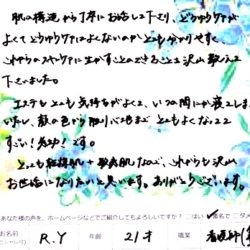 肌の構造から丁寧にお話して下さり、どのようなケアが
よくてどのようなケアによくないのかとても分かりやすく、
これからのスキンケアに生かすことのできることを沢山教えて
下さいました。
エステもとても気持ちがよくて、いつの間にか寝てしま
いましたし、顔の色から触り心地までとてもよくなって
すごい！感動！です。
とっても乾燥肌+敏感肌なので、これからも沢山
お世話になりたいと思います。ありがとうございます。
あなた様の声を、ホームページなどでご紹介してもよろしいですか？ はい 匿名で
お名前 R.Y 年齢 21才 職業 看護師